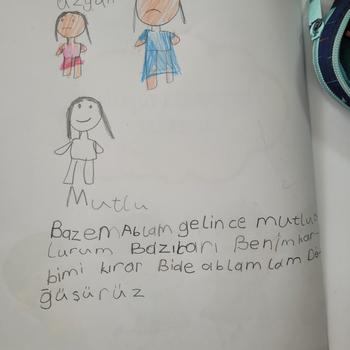 üzgün
Mutlu
Bazem Ablam gelince mutluo
lurum Bazıbarı Benim har
bimi kırar Bide ablam lam Dö
ğüşürüz